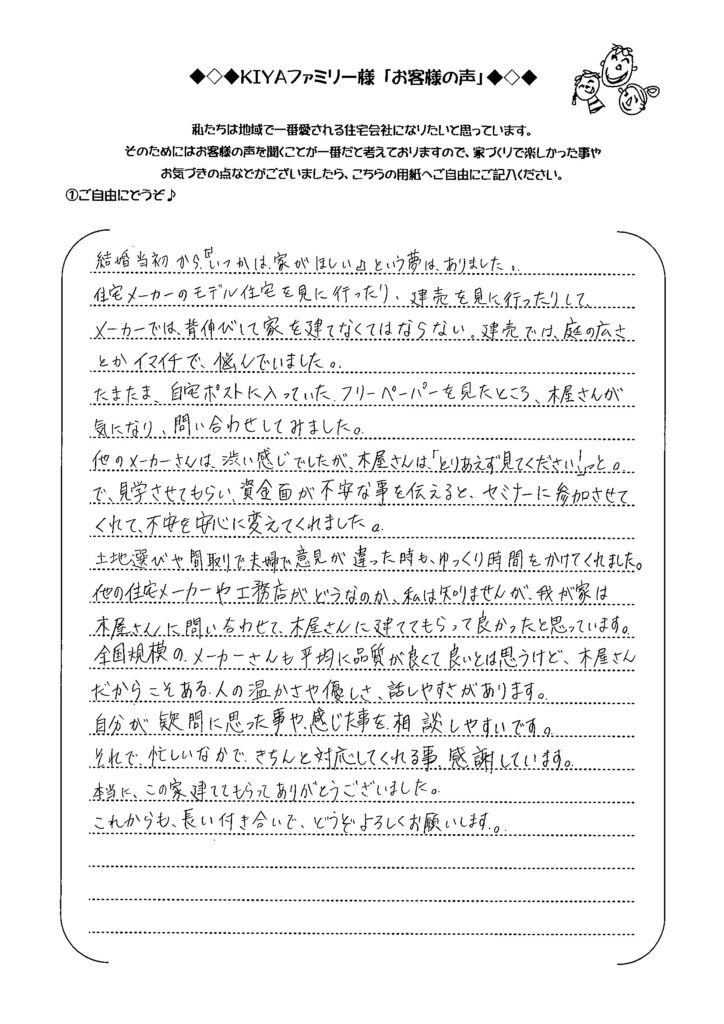 ◆◇◆KIYAファミリー様「お客様の声」◆◇◆
私たちは地域で一番愛される住宅会社になりたいと思っています。
そのためにはお客様の声を聞くことが一番だと考えておりますので、家づくりで楽しかった事や
お気づきの点などがございましたら、こちらの用紙へご自由にご記入ください。
①ご自由にどうぞ♪
結婚当初から『いつかは家がほしい』という夢は、ありました。
住宅メーカーのモデル住宅を見に行ったり、建売を見に行ったりして、
メーカーでは、背伸びして家を建てなくてはならない。建売では、庭の広さ
とかイマイチで、悩んでいました。
たまたま、自宅ポストに入っていたフリーペーパーを見たところ、木屋さんが
気になり、問い合わせしてみました。
他のメーカーさんは、渋い感じでしたが、木屋さんは、「とりあえず見てください!」っと。
で、見学させてもらい、資金面が不安な事を伝えると、セミナーに参加させて
くれて、不安を安心に変えてくれました。
土地選びや間取りで夫婦で意見が違った時も、ゆっくり時間をかけてくれました。
他の住宅メーカーや工務店がどうなのか、私は知りませんが、我が家は
木屋さんに問い合わせて、木屋さんに建ててもらって良かったと思っています。
全国規模のメーカーさんも平均に品質が良くて良いとは思うけど、木屋さん
だからこそある人の温かさや優しさ、話しやすさがあります。
自分が疑問に思った事や、感じた事を相談しやすいです。
それで、忙しいなかで、きちんと対応してくれる事、感謝しています。
本当に、この家建ててもらってありがとうございました。
これからも、長い付き合いで、どうぞよろしくお願いします。